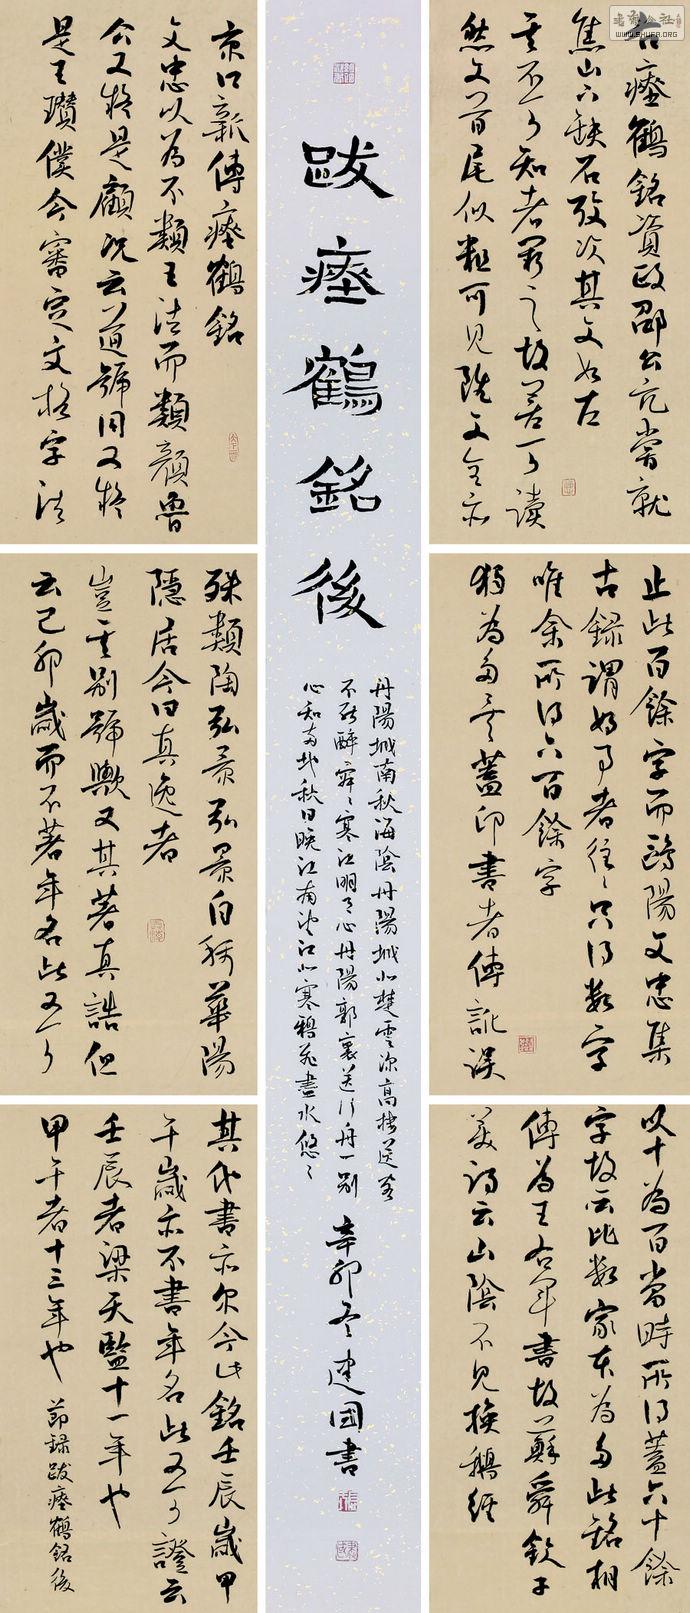 書法公社
WWW.SHUFA.ORG
右瘞鶴銘資政邵公亢嘗就
焦山下缺石考次其文如左
其不可知者闕之故差可讀
然文首尾似粗可見雖文全亦
止此百餘字而歐陽文忠集
古録謂好事者往〻只得數字
唯余所得六百餘字
獨為多矣蓋印書者傳訛誤
以十為百當時所得蓋六十餘
字故云比數家本為多此銘相
傳為王右軍書故蘇舜欽子
美詩云山陰不見換鵝經
京口新傳瘞鶴銘
文忠以為不類王法而類顏魯
公又疑是顧況云道號同又疑
是王瓚僕今審定文格字法
殊類陶弘景弘景自稱華陽
隱居今曰真逸者
豈其别號歟又其著真誥但
云己卯歲而不著年名此又可
其他書亦尔今此銘壬辰歲甲
午歲亦不書年名此又可證云
壬辰者梁天監十一年也
甲午者十三年也
節録跋瘞鶴銘後
跋瘞鶴銘後
丹陽城南秋海陰丹陽城北楚雲深高樓送客
不能醉寂〻寒江明月心丹陽郭裏送行舟一别
心知兩地秋日晚江南望江北寒鴉飛盡水悠〻
辛卯冬建國書